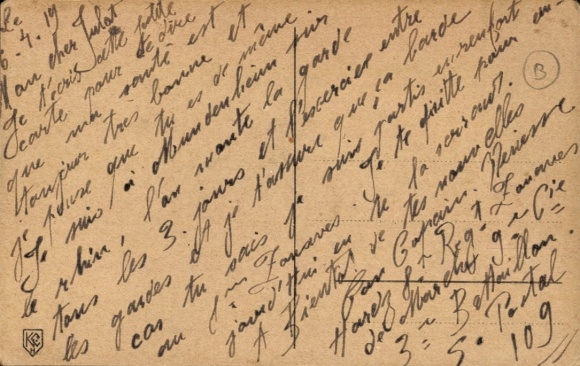 Le
6-4-19
Mon cher Julot
Je t'écris cette petite
carte pour te dire
que ma santé est et
toujour très bonne et
je pense que tu es de même
Je suis à Mundenheim sur
le rhin, l'on monte la garde
tous les 3 jours et l'exercice entre
les gardes et je t'assure que ça barde
car tu sais je suis partis en renfort
au 1er Zouaves. Je te quitte pour au-
jourd'hui en te la serrant.
A Bientot de tes nouvelles
Ton Copain.
Régt Zouaves
de Marche 9e Cie
3e Bataillon.
S. Postal
109
B
K
H